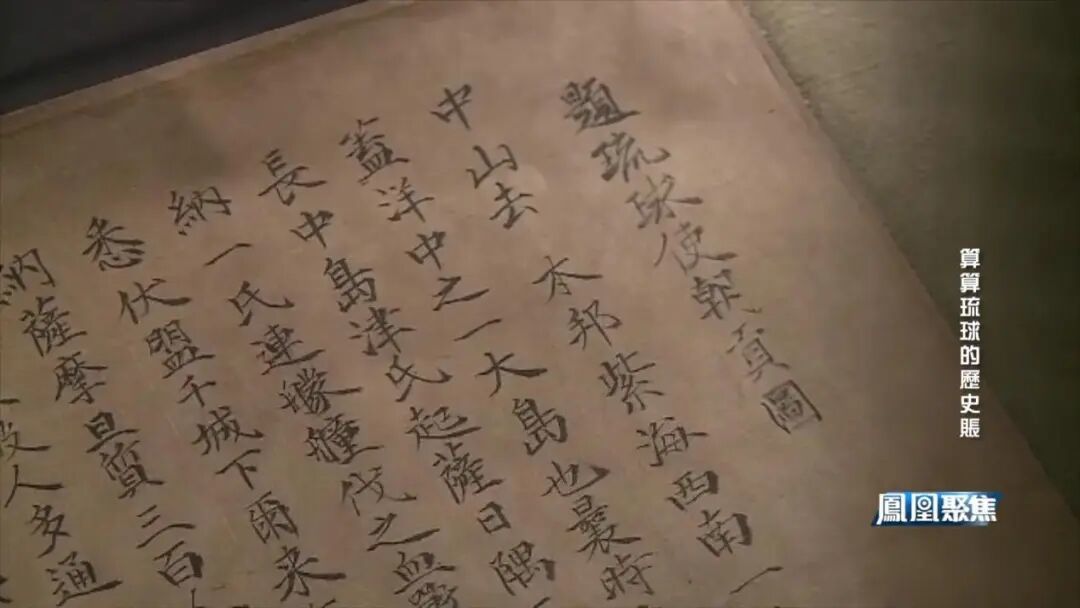 題琉球使朝貢圖
中山去 本邦紫海西南一
蓋洋中之一大島也曩時
長中島津氏起薩日隅
納一氏連艨艟伐之血戰
悉伏盟于城下爾来
納薩摩且質三百
人多通
算算琉球的歷史賬
鳳凰聚焦